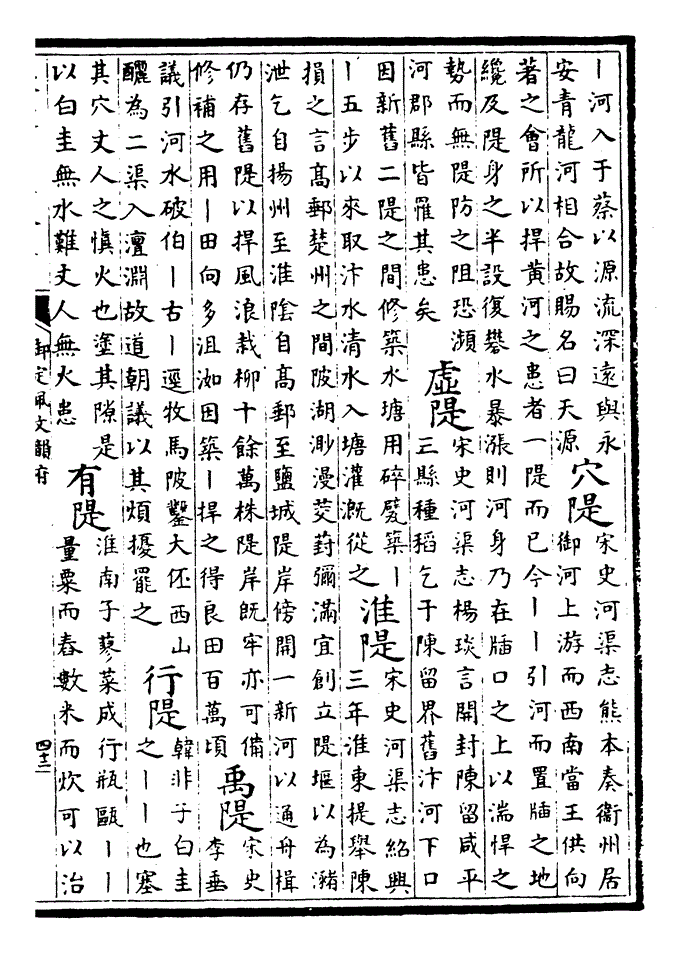 丨河入于蔡以源流深遠與永
安青龍河相合故賜名曰天源
穴隄
宋史河渠志熊本奏衞州居
御河上游而西南當王供向
著之會所以捍黃河之患者一隄而已今丨丨引河而置牐之地
纔及隄身之半設復礬水暴漲則河身乃在牐口之上以湍悍之
勢而無隄防之阻恐瀕
河郡縣皆罹其患矣
虛隄
宋史河渠志楊琰言開封陳留咸平
三縣種稻乞于陳留界舊汴河下口
因新舊二隄之間修築水塘用碎甓築丨
丨五步以來取汴水清水入塘灌溉從之
淮隄
宋史河渠志紹興
三年淮東提舉陳
損之言高郵楚州之間陂湖渺漫茭葑彌滿宜創立隄堰以為瀦
泄乞自揚州至淮陰自高郵至鹽城隄岸傍開一新河以通舟楫
仍存舊隄以捍風浪栽柳十餘萬株隄岸既牢亦可備
修補之用丨田向多沮洳因築丨捍之得良田百萬頃
禹隄
宋史
李垂
議引河水破伯丨古丨逕牧馬陂鑿大伾西山
釃為二渠入澶淵故道朝議以其煩擾罷之
行隄
韓非子白圭
之丨丨也塞
其穴丈人之愼火也塗其隙是
以白圭無水難丈人無火患
有隄
淮南子蓼菜成行瓶甌丨丨
量粟而舂數米而炊可以治
御定佩文韻府